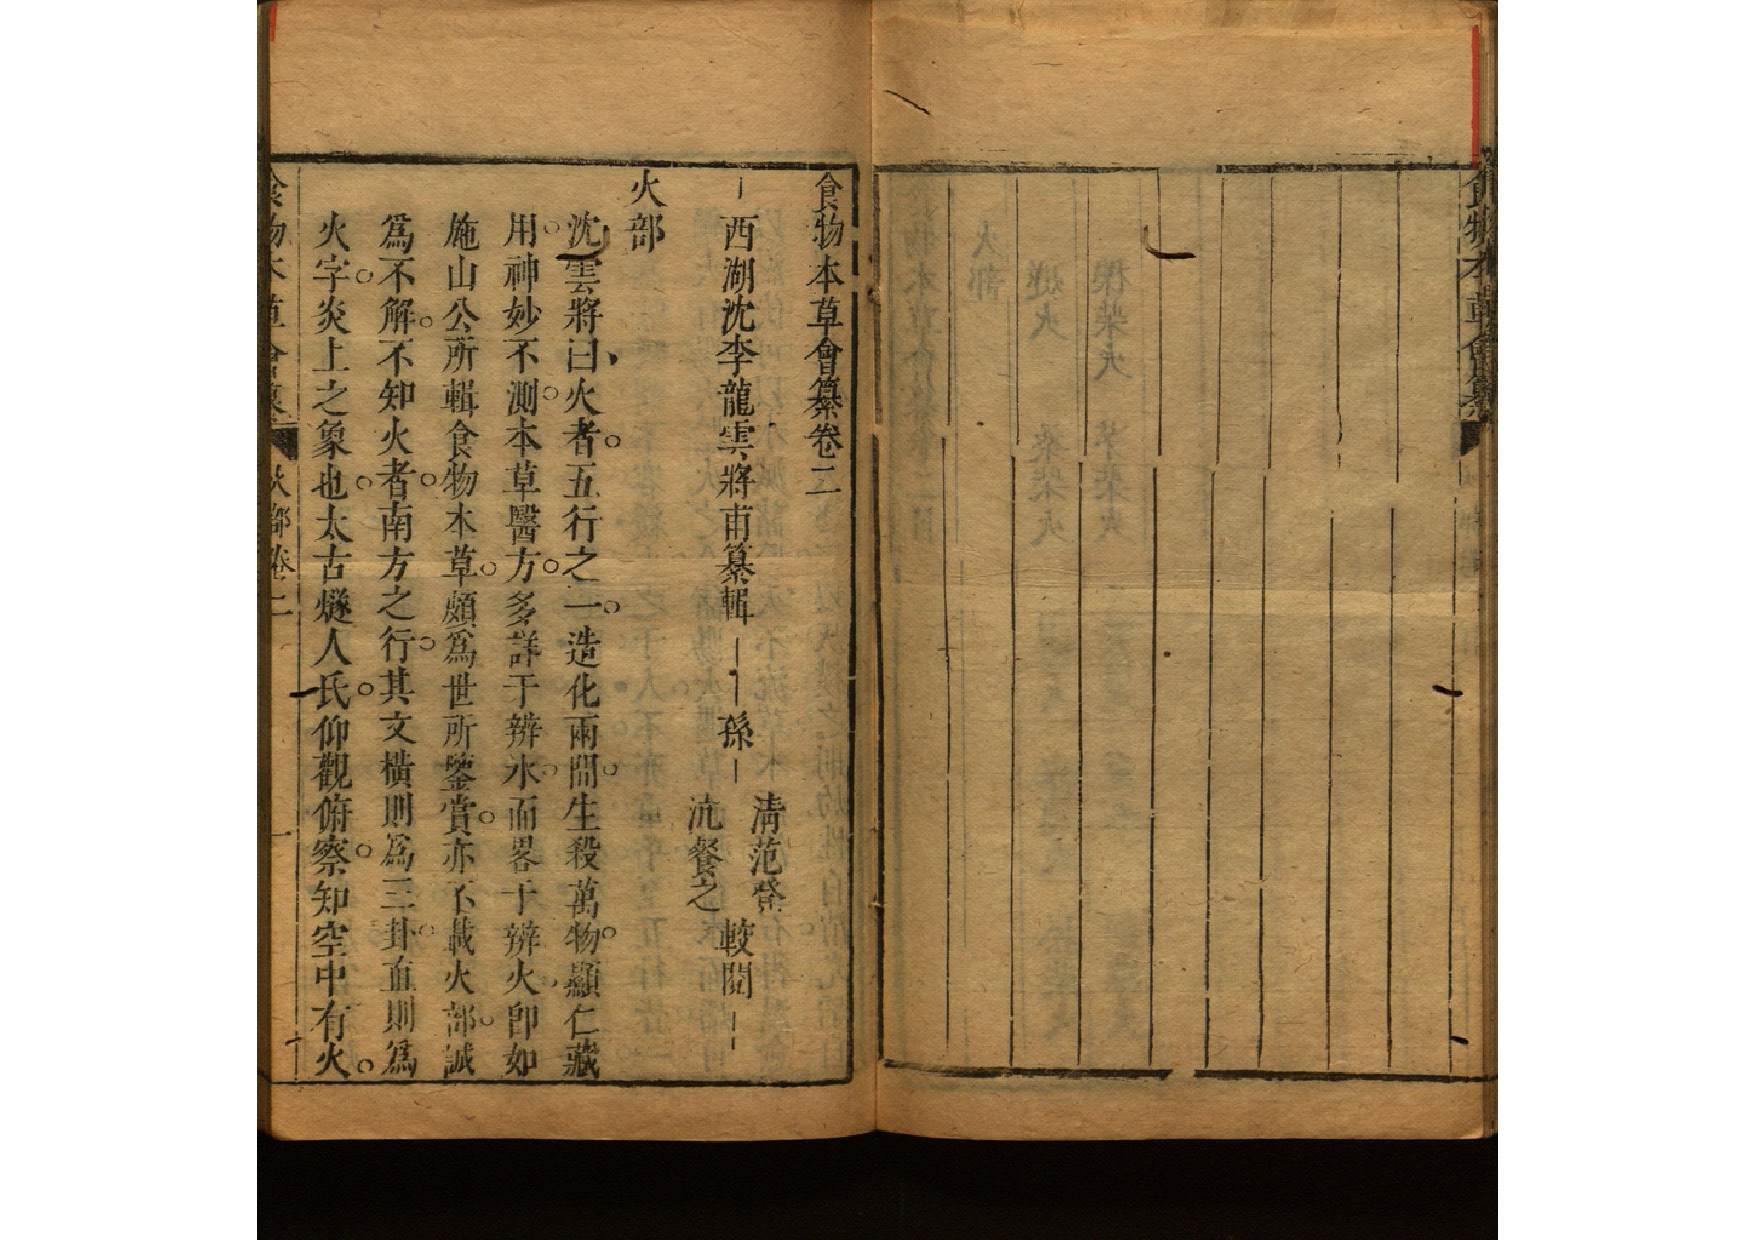 食物本草會纂
食物本草會纂卷二
西湖沈李龍雲將甫纂輯
孫
清范
沇餐之
較閱
火部
沈雲將曰火者五行之一造化兩間生殺萬物顯仁藏
用神妙不測本草醫方多詳于辨水而畧于辨火卽如
施山公所輯食物本草頗爲世所鑒賞亦不載火部誠
爲不解不知火者南方之行其文橫則爲三卦直則爲
火字炎上之象也太古燧人氏仰觀俯察知空中有火
食物本草會纂
火部卷二
一